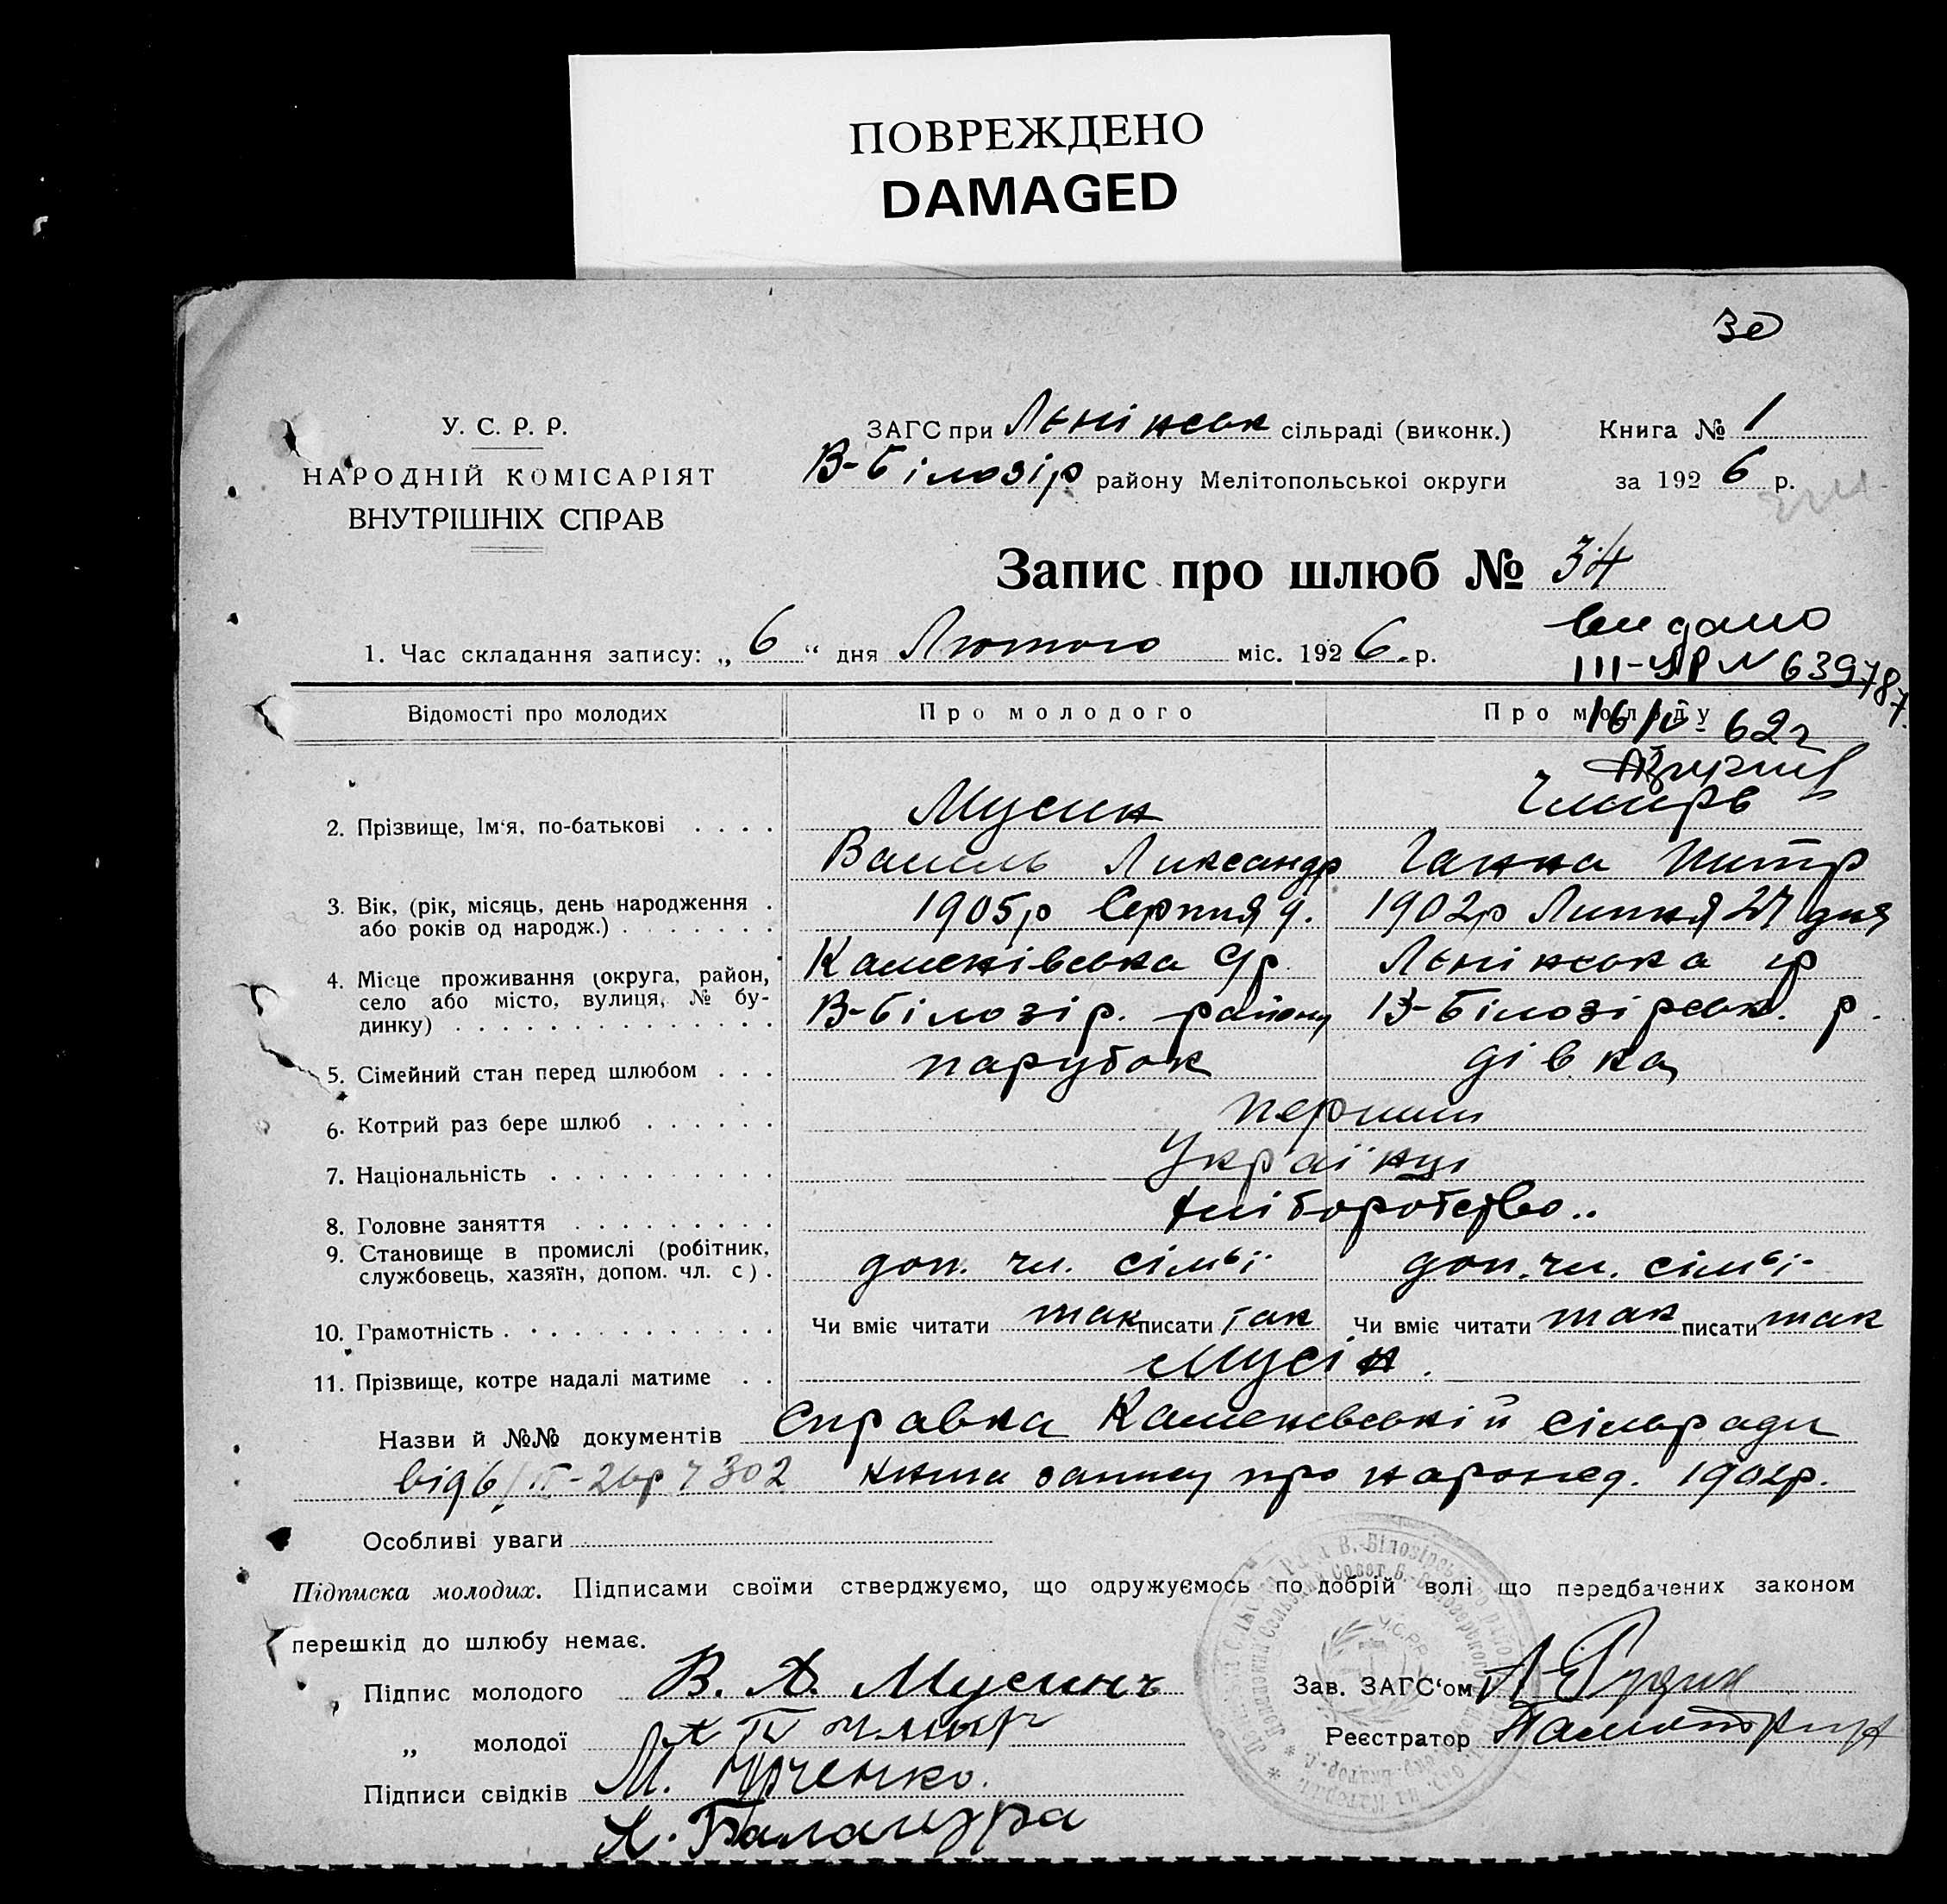 ПОВРЕЖДЕНО
DAMAGED
30
У. С. Р. Р.
НАРОДНІЙ КОМІСАРІЯТ
ВНУТРІШНІХ СПРАВ
ЗАГС при Ленінськ сільраді (виконк.)
В-Білозір району Мелітопольської округи
Книга № 1
за 1926 р.
Запис про шлюб № 34
видано
III-ЯР N 639787.
16/IV-62г
1. Час складання запису: „6“ дня Лютого міс. 1926. р.
Відомості про молодих Про молодого Про молоду
2. Прізвище, Ім‘я, по-батькові . . . . Мусин
Василь Лиександр Ганна Питр
3. Вік, (рік, місяць, день народження . 1905р Серпня 9. 1902р Липня 27 дня
або років од народж.) . . . . . . .
4. Місце проживання (округа, район, Каменівська С/р. Ленінська с/р
село або місто, вулиця, № бу- В-Білозір. району В-Білозірськ. р.
динку) . . . . . . . . . . . . . .
5. Сімейний стан перед шлюбом . . . парубок дівка
6. Котрий раз бере шлюб . . . . . . перший
7. Національність . . . . . . . . . . Українці
8. Головне заняття . . . . . . . . . хліборобство..
9. Становище в промислі (робітник, доп. чл. сімьї доп. чл. сімьї-
службовець, хазяїн, допом. чл. с) .
10. Грамотність . . . . . . . . . . . Чи вміє читати так писати так Чи вміє читати так писати так
11. Прізвище, котре надалі матиме . . Мусін.
Назви й №№ документів Справка Каменевській сільради
від 6/II-26р 302 книга запису про народжед. 1902р.
Особливі уваги
Підписка молодих. Підписами своїми стверджуємо, що одружуємось по добрій волі що передбачених законом
перешкід до шлюбу немає.
Підпис молодого В. А. Мусинъ
Зав. ЗАГС‘ом
„ молодої
Реєстратор
Підписи свідків М. Юрченко.
Х. Балангура
У.С.Р.Р.